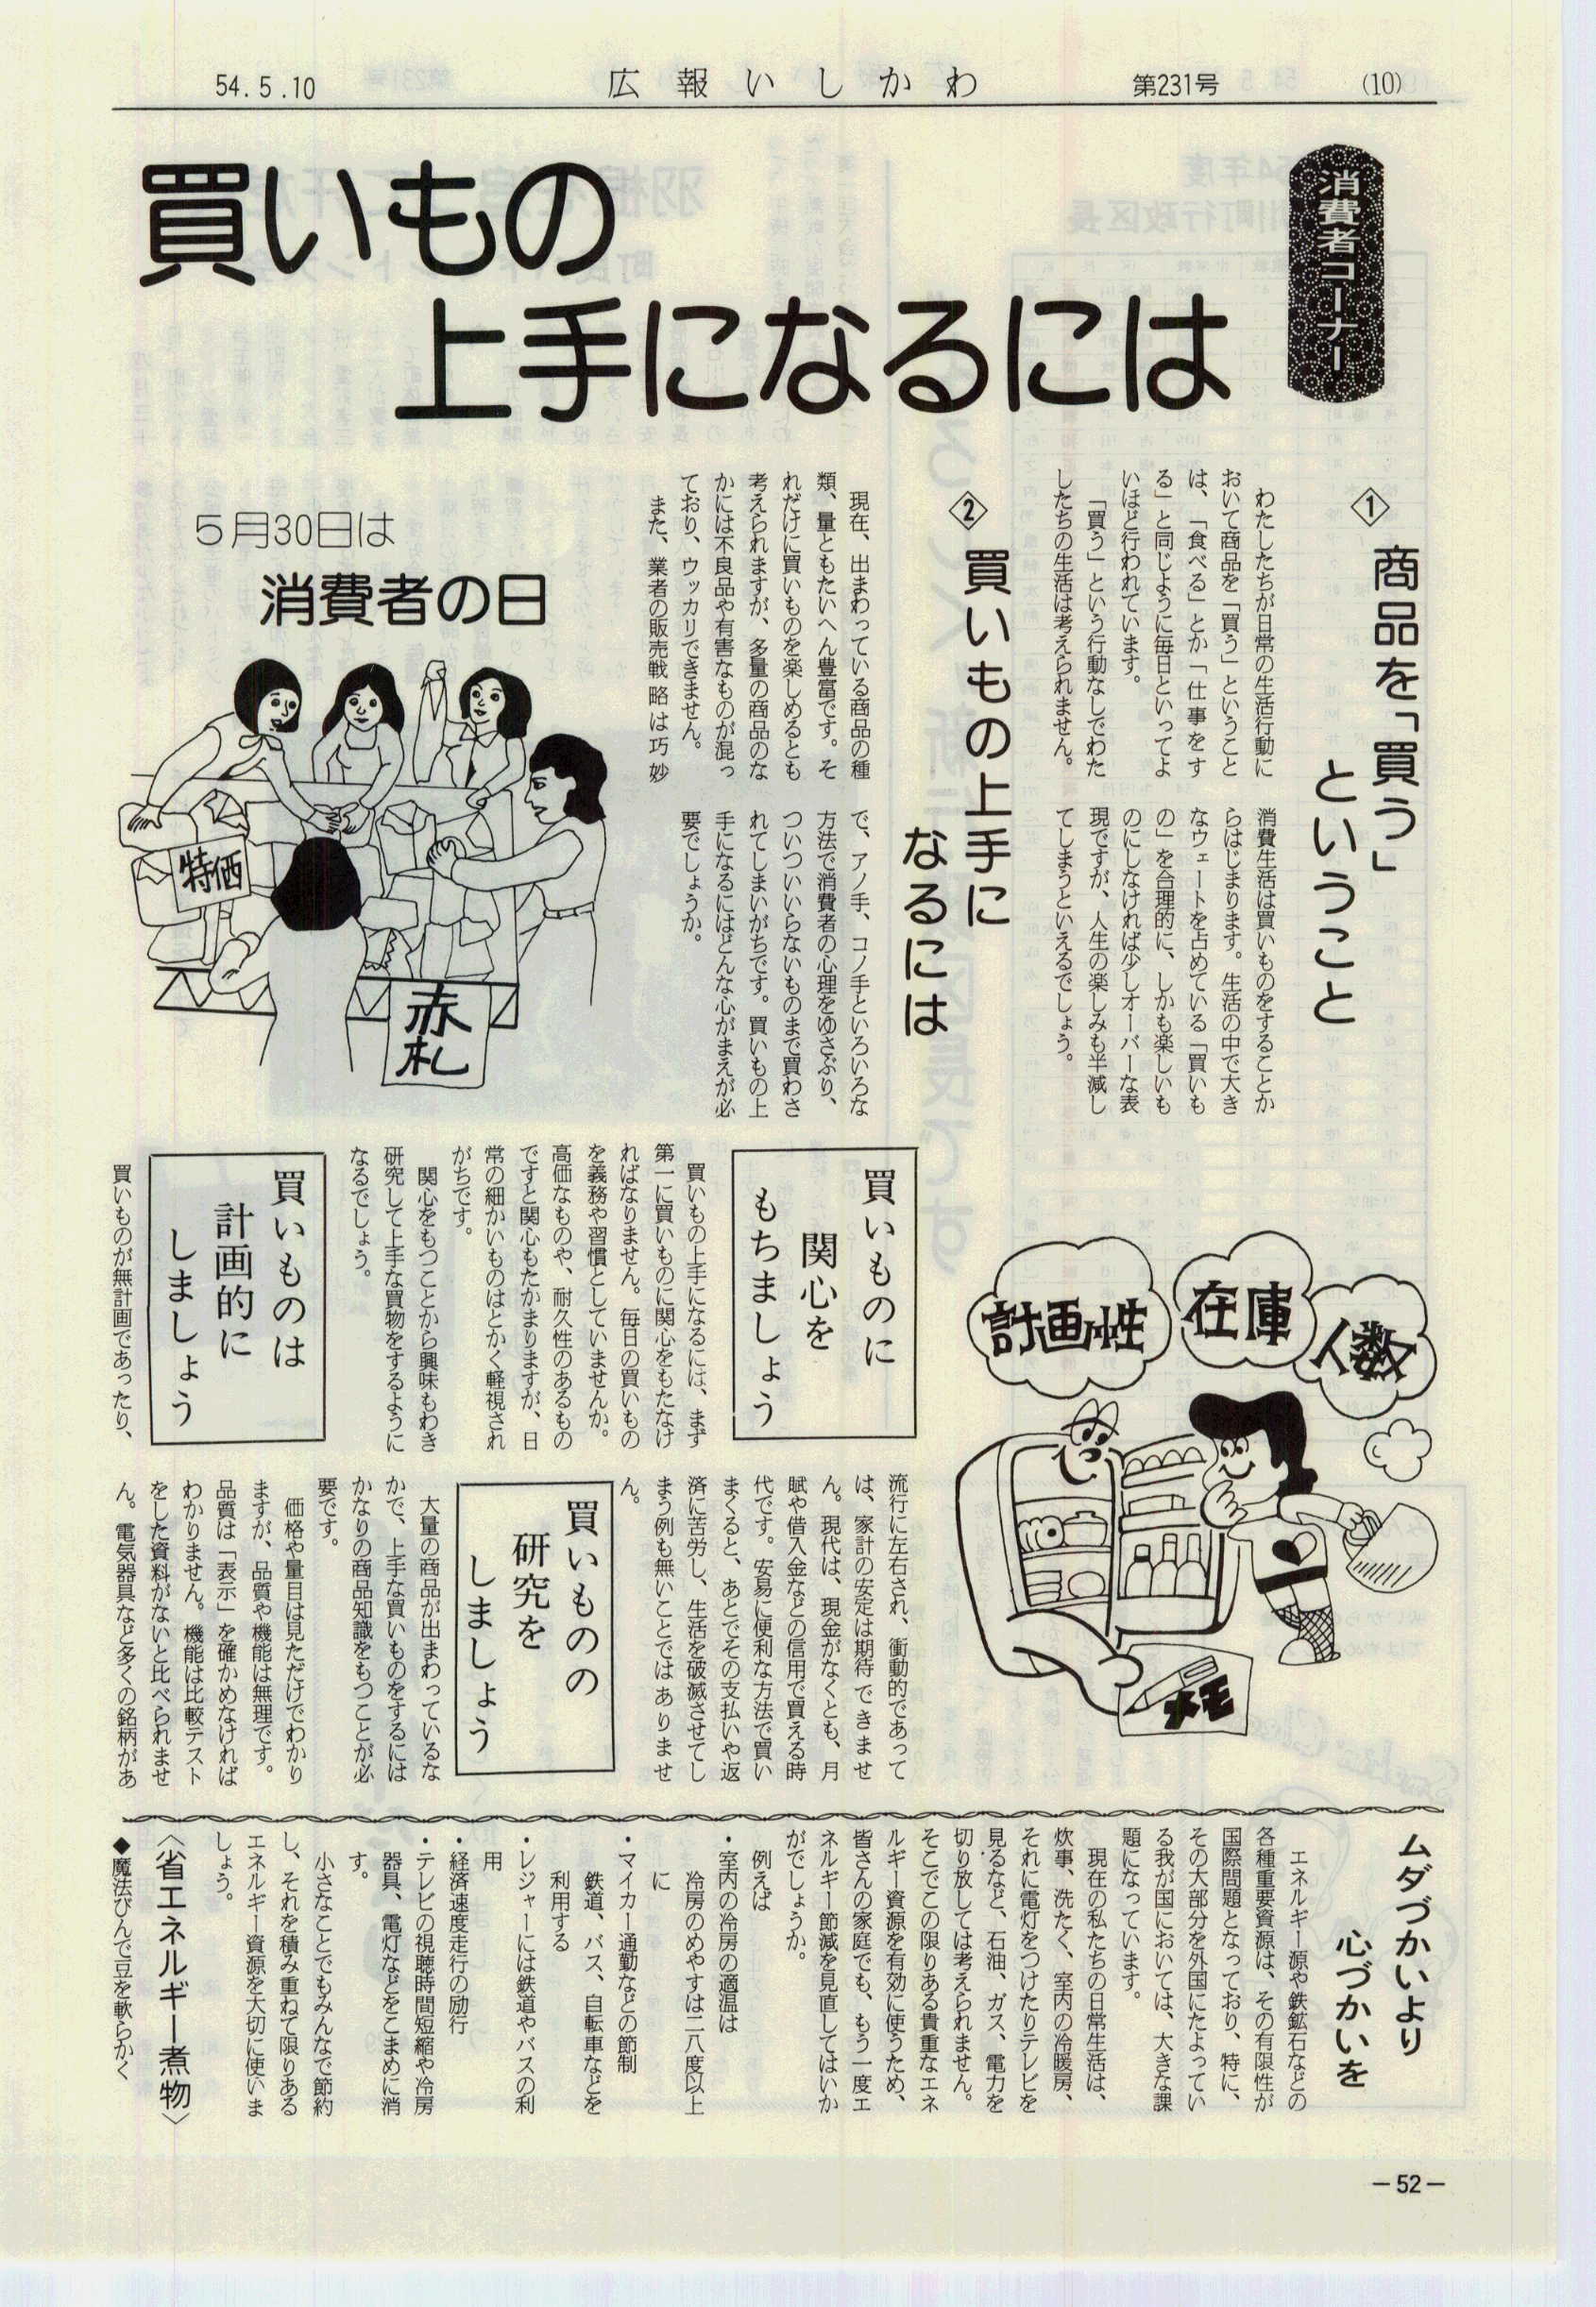 54.5.10
広報いしかわ
第231号
(10)
消費者コーナー
買いもの
上手になるには
①商品を「買う」
ということ
わたしたちが日常の生活行動に
おいて商品を「買う」ということ
は、「食べる」とか「仕事をす
る」と同じように毎日といってよ
いほど行われています。
「買う」という行動なしでわた
したちの生活は考えられません。
消費生活は買いものをすることか
らはじまります。生活の中で大き
なウェートを占めている「買いも
の」を合理的に、しかも楽しいも
のにしなければ少しオーバーな表
現ですが、人生の楽しみも半減し
てしまうといえるでしょう。
②買いもの上手に
なるには
現在、出まわっている商品の種
類、量ともたいへん豊富です。そ
れだけに買いものを楽しめるとも
考えられますが、多量の商品のな
かには不良品や有害なものが混っ
ており、ウッカリできません。
また、業者の販売戦略は巧妙
で、アノ手、コノ手といろいろな
方法で消費者の心理をゆさぶり、
ついついいらないものまで買わさ
れてしまいがちです。買いもの上
手になるにはどんな心がまえが必
要でしょうか。
5月30日は
消費者の日
特価
赤札
計画性
在庫
人数
メモ
買いものに
関心を
もちましょう
買いもの上手になるには、まず
第一に買いものに関心をもたなけ
ればなりません。毎日の買いもの
を義務や習慣としていませんか。
高価なものや、耐久性のあるもの
ですと関心もたかまりますが、日
常の細かいものはとかく軽視され
がちです。
関心をもつことから興味もわき
研究して上手な買物をするように
なるでしょう。
買いものは
計画的に
しましょう
買いものが無計画であったり、
流行に左右され、衝動的であって
は、家計の安定は期待できませ
ん。現代は、現金がなくとも、月
賦や借入金などの信用で買える時
代です。安易に便利な方法で買い
まくると、あとでその支払いや返
済に苦労し、生活を破滅させてし
まう例も無いことではありませ
ん。
買いものの
研究を
しましょう
大量の商品が出まわっているな
かで、上手な買いものをするには
かなりの商品知識をもつことが必
要です。
価格や量目は見ただけでわかり
ますが、品質や機能は無理です。
品質は「表示」を確かめなければ
わかりません。機能は比較テスト
をした資料がないと比べられませ
ん。電気器具など多くの銘柄があ
ムダづかいより
心づかいを
エネルギー源や鉄鉱石などの
各種重要資源は、その有限性が
国際問題となっており、特に、
その大部分を外国にたよってい
る我が国においては、大きな課
題になっています。
現在の私たちの日常生活は、
炊事、洗たく、室内の冷暖房、
それに電灯をつけたりテレビを
見るなど、石油、ガス、電力を
切り放しては考えられません。
そこでこの限りある貴重なエネ
ルギー資源を有効に使うため、
皆さんの家庭でも、もう一度エ
ネルギー節減を見直してはいか
がでしょうか。
例えば
・室内の冷房の適温は
冷房のめやすは二八度以上
に
・マイカー通勤などの節制
鉄道、バス、自転車などを
利用する
・レジャーには鉄道やバスの利
用
・経済速度走行の励行
・テレビの視聴時間短縮や冷房
器具、電灯などをこまめに消
す。
小さなことでもみんなで節約
し、それを積み重ねて限りある
エネルギー資源を大切に使いま
しょう。
〈省エネルギー煮物〉
◆魔法びんで豆を軟らかく
－52－